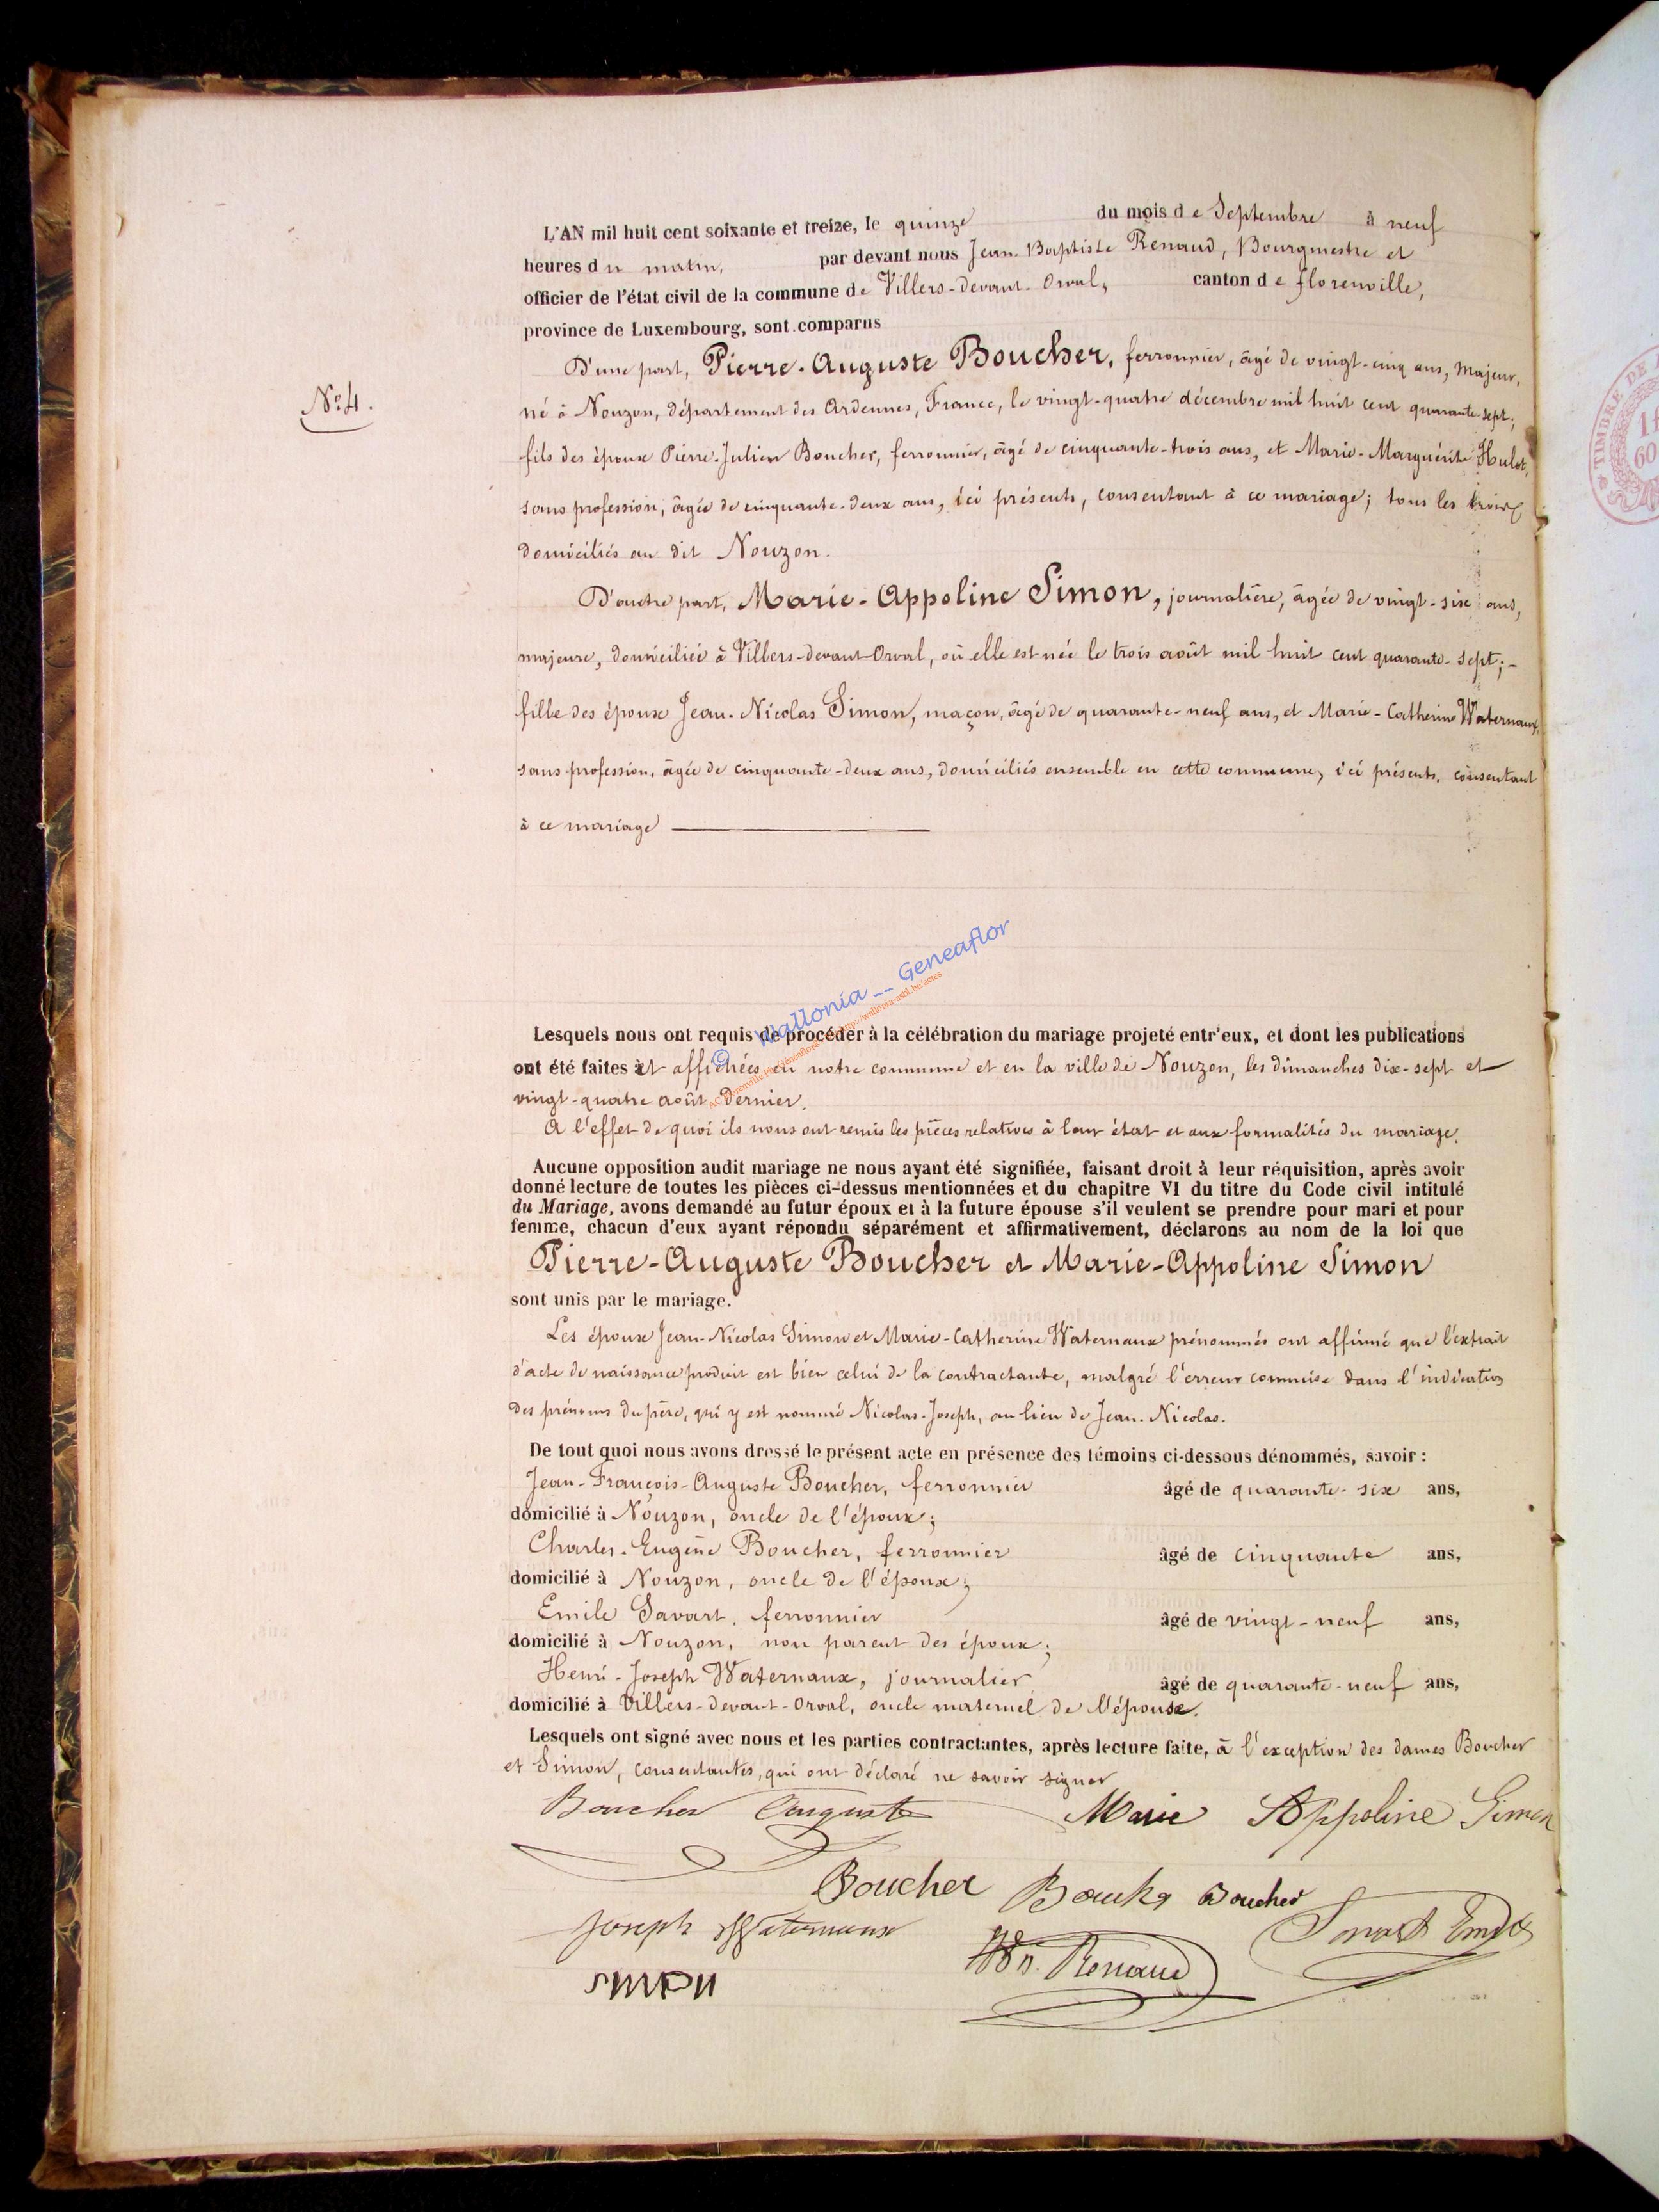 L'AN mil huit cent soixante et treize, le quinze du mois de Septembre à neuf
heures du matin, par devant nous Jean-Baptiste Renaud, Bourgmestre et
officier de l'état civil de la commune de Villers-devant-Orval, canton de florenville,
province de Luxembourg, sont comparus
D'une part, Pierre-Auguste Boucher, ferronnier, âgé de vingt-cinq ans, majeur,
No 4.
né à Nouzon, département des Ardennes, France, le vingt-quatre décembre mil huit cent quarante-sept;
fils des époux Pierre-Julien Boucher, ferronnier, âgé de cinquante-trois ans, et Marie-Marguérite Hulot,
sans profession, âgée de cinquante-deux ans, ici présents, consentant à ce mariage; tous les trois
domiciliés au dit Nouzon.
D'autre part, Marie-Appoline Simon, journalière, âgée de vingt-six ans,
majeure, domiciliée à Villers-devant-Orval, où elle est née le trois août mil huit cent quarante-sept;-
fille des époux Jean-Nicolas Simon, maçon, âgé de quarante-neuf ans, et Marie-Catherine Waternaux,
sans profession, âgée de cinquante-deux ans, domiciliés ensemble en cette commune, ici présents, consentant
à ce mariage
© Wallonia -- Geneaflor
Lesquels nous ont requis de procéder à la célébration du mariage projeté entr'eux, et dont les publications
ont été faites et affichées en notre commune et en la ville de Nouzon, les dimanches dix-sept et
vingt-quatre août dernier.
A l'effet de quoi ils nous ont remis les pièces relatives à leur état et aux formalités du mariage.
Aucune opposition audit mariage ne nous ayant été signifiée, faisant droit à leur réquisition, après avoir
donné lecture de toutes les pièces ci-dessus mentionnées et du chapitre VI du titre du Code civil intitulé
du Mariage, avons demandé au futur époux et à la future épouse s'il veulent se prendre pour mari et pour
femme, chacun d'eux ayant répondu séparément et affirmativement, déclarons au nom de la loi que
Pierre-Auguste Boucher et Marie-Appoline Simon
sont unis par le mariage.
Les époux Jean-Nicolas Simon et Marie-Catherine Waternaux prénommés ont affirmé que l'extrait
d'acte de naissance produit est bien celui de la contractante, malgré l'erreur commise dans l'indication
des prénoms du père, qui y est nommé Nicolas-Joseph, au lieu de Jean-Nicolas.
De tout quoi nous avons dressé le présent acte en présence des témoins ci-dessous dénommés, savoir :
Jean-François-Auguste Boucher, ferronnier âgé de quarante-six ans,
domicilié à Nouzon, oncle de l'époux;
Charles-Eugène Boucher, ferronnier âgé de cinquante ans,
domicilié à Nouzon, oncle de l'époux;
Emile Savart, ferronnier âgé de vingt-neuf ans,
domicilié à Nouzon, non parent des époux;
Henri-Joseph Waternaux, journalier âgé de quarante-neuf ans,
domicilié à Villers-devant-Orval, oncle maternel de l'épouse.
Lesquels ont signé avec nous et les parties contractantes, après lecture faite, à l'exception des dames Boucher
et Simon, consentantes, qui ont déclaré ne savoir signer
Boucher Auguste Marie Appoline Simon
Boucher Boucher Boucher
Joseph Waternaux Savart Emile
Renaud
SIMON
TIMBRE DE